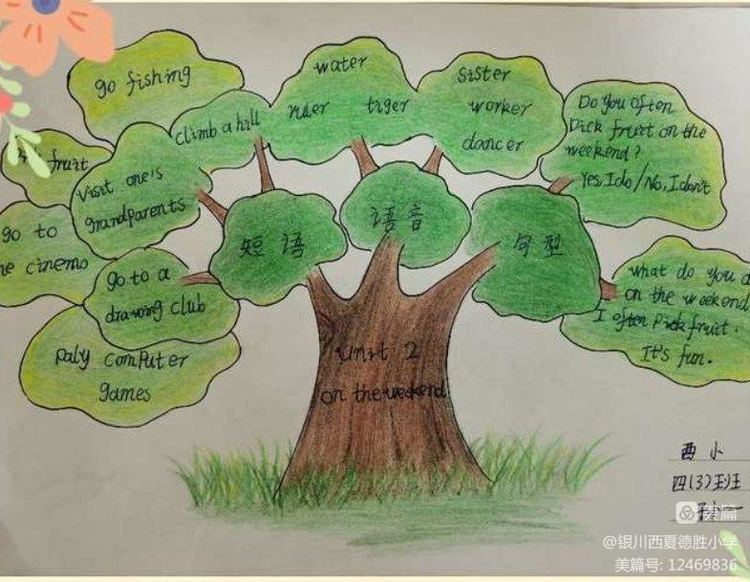 go fishing
climb a hill
fruit
visit one's
grandparents
go to
cinema
go to a
drawing club
paly computer
games
water
tiger
sister
worker
dancer
Do you often
pick fruit on the
weekend?
Yes, I do / No, I don't
what do you
on the weekend
I often pick fruit.
It's fun.
短语
语音
句型
Unit 2
on the weekend
西小
四(3)班
美篇
@银川西夏德胜小学
美篇号: 12469836